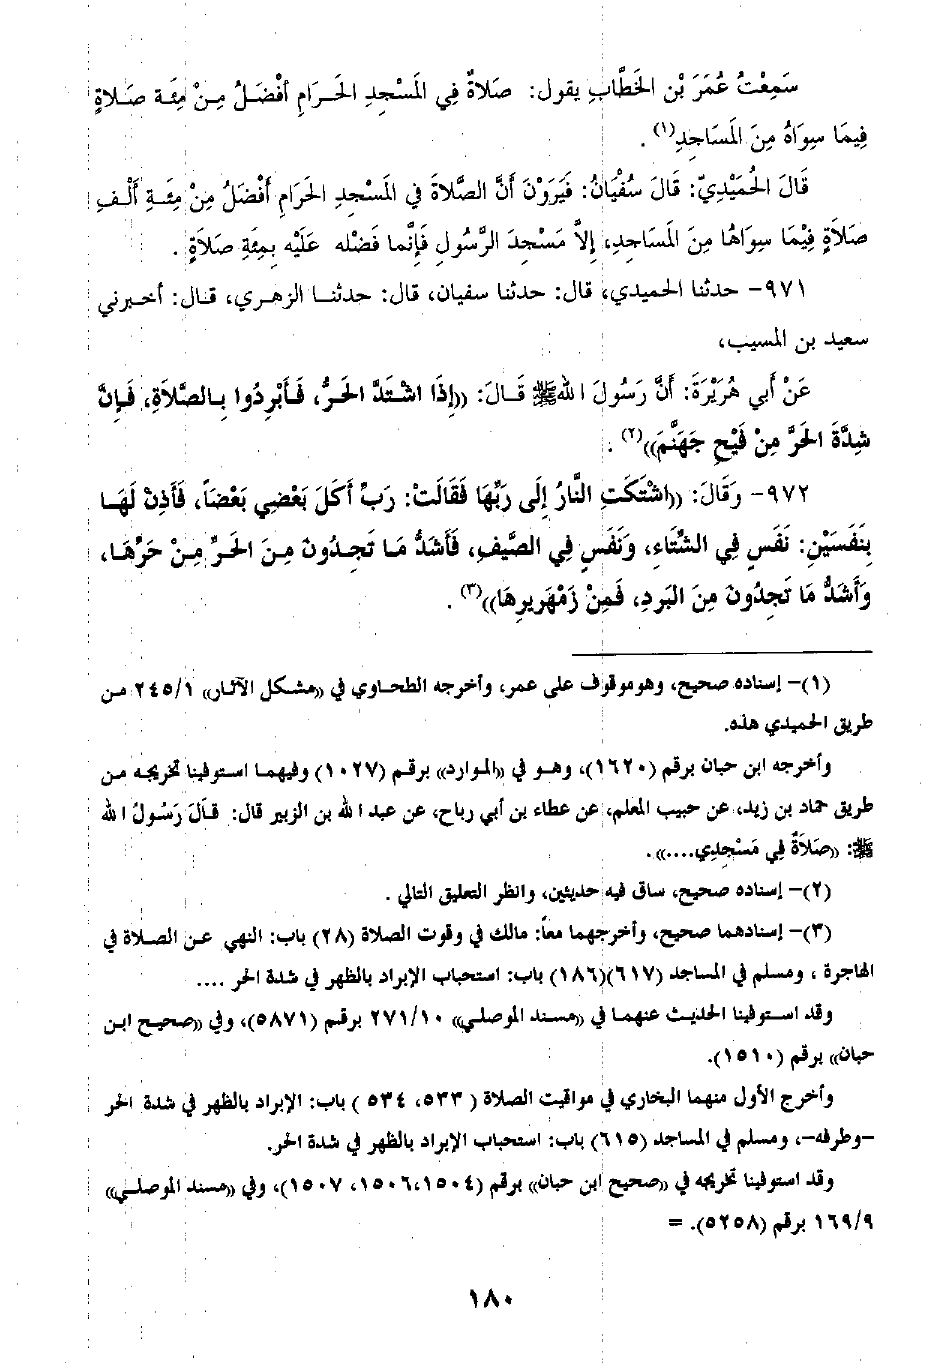 سَمِعْتُ عُمَرَ بْن الخَطَّابِ يقول: صَلاةٌ فِي المَسْجِدِ الحَرَامِ أفْضَلُ مِنْ مِئَة صَلاةٍ
فِيمَا سِوَاهُ مِنَ المَسَاجِدِ(١).
قَالَ الحُمَيْدِيّ: قَالَ سُفْيَانُ: فَيَرَوْنَ أَنَّ الصَّلاةَ فِي المَسْجِدِ الحَرَامِ أَفْضَلُ مِنْ مِئَةِ أَلْفِ
صَلاَةٍ فِيْمَا سِوَاهَا مِنَ المَسَاجِدِ، إِلاَّ مَسْجِدَ الرَّسُولِ فَإِنَّما فَضْله عَلَيْه بِمِئَةِ صَلاَةٍ.
٩٧١- حدثنا الحميدي، قال: حدثنا سفيان، قال: حدثنا الزهري، قال: أخبرني
سعيد بن المسيب،
عَنْ أَبِي هُرَيْرَةَ: أَنَّ رَسُولَ اللهِ ﷺ قَالَ: ((إِذَا اشْتَدَّ الحَرُّ، فَأَبْرِدُوا بِالصَّلاَةِ، فَإِنَّ
شِدَّةَ الحَرِّ مِنْ فَيْحِ جَهَنَّمَ))(٢).
٩٧٢- وَقَالَ: ((اشْتَكَتِ النَّارُ إِلَى رَبِّهَا فَقَالَتْ: رَبِّ أَكَلَ بَعْضِي بَعْضَاً، فَأَذِنْ لَهَا
بِنَفَسَيْنِ: نَفَسٍ فِي الشِّتَاءِ، وَنَفَسٍ فِي الصَّيفِ، فَأَشَدُّ مَا تَجِدُونَ مِنَ الحَرِّ مِنْ حَرِّهَا،
وَأَشَدُّ مَا تَجِدُونَ مِنَ البَردِ، فَمِنْ زَمْهَرِيرِهَا))(٣).
(١)- إسناده صحيح، وهو موقوف على عمر، وأخرجه الطحاوي في ((مشكل الآثار)) ٢٤٥/١ من
طريق الحميدي هذه.
وأخرجه ابن حبان برقم (١٦٢٠)، وهو في ((الموارد)) برقم (١٠٢٧) وفيهما استوفينا تخريجه من
طريق حماد بن زيد، عن حبيب المعلم، عن عطاء بن أبي رباح، عن عبد الله بن الزبير قال: قَالَ رَسُولُ الله
ﷺ: ((صَلاَةٌ فِي مَسْجِدِي....)).
(٢)- إسناده صحيح، ساق فيه حديثين، وانظر التعليق التالي.
(٣)- إسنادهما صحيح، وأخرجهما معاً: مالك في وقوت الصلاة (٢٨) باب: النهي عن الصلاة في
الهاجرة، ومسلم في المساجد (٦١٧)(١٨٦) باب: استحباب الإبراد بالظهر في شدة الحر ....
وقد استوفينا الحديث عنهما في ((مسند الموصلي)) ٢٧١/١٠ برقم (٥٨٧١)، وفي ((صحيح ابن
حبان)) برقم (١٥١٠).
وأخرج الأول منهما البخاري في مواقيت الصلاة (٥٣٣، ٥٣٤) باب: الإبراد بالظهر في شدة الحر
-وطرفه-، ومسلم في المساجد (٦١٥) باب: استحباب الإبراد بالظهر في شدة الحر.
وقد استوفينا تخريجه في ((صحيح ابن حبان)) برقم (١٥٠٤،١٥٠٦، ١٥٠٧)، وفي ((مسند الموصلي))
١٦٩/٩ برقم (٥٢٥٨). =
١٨٠